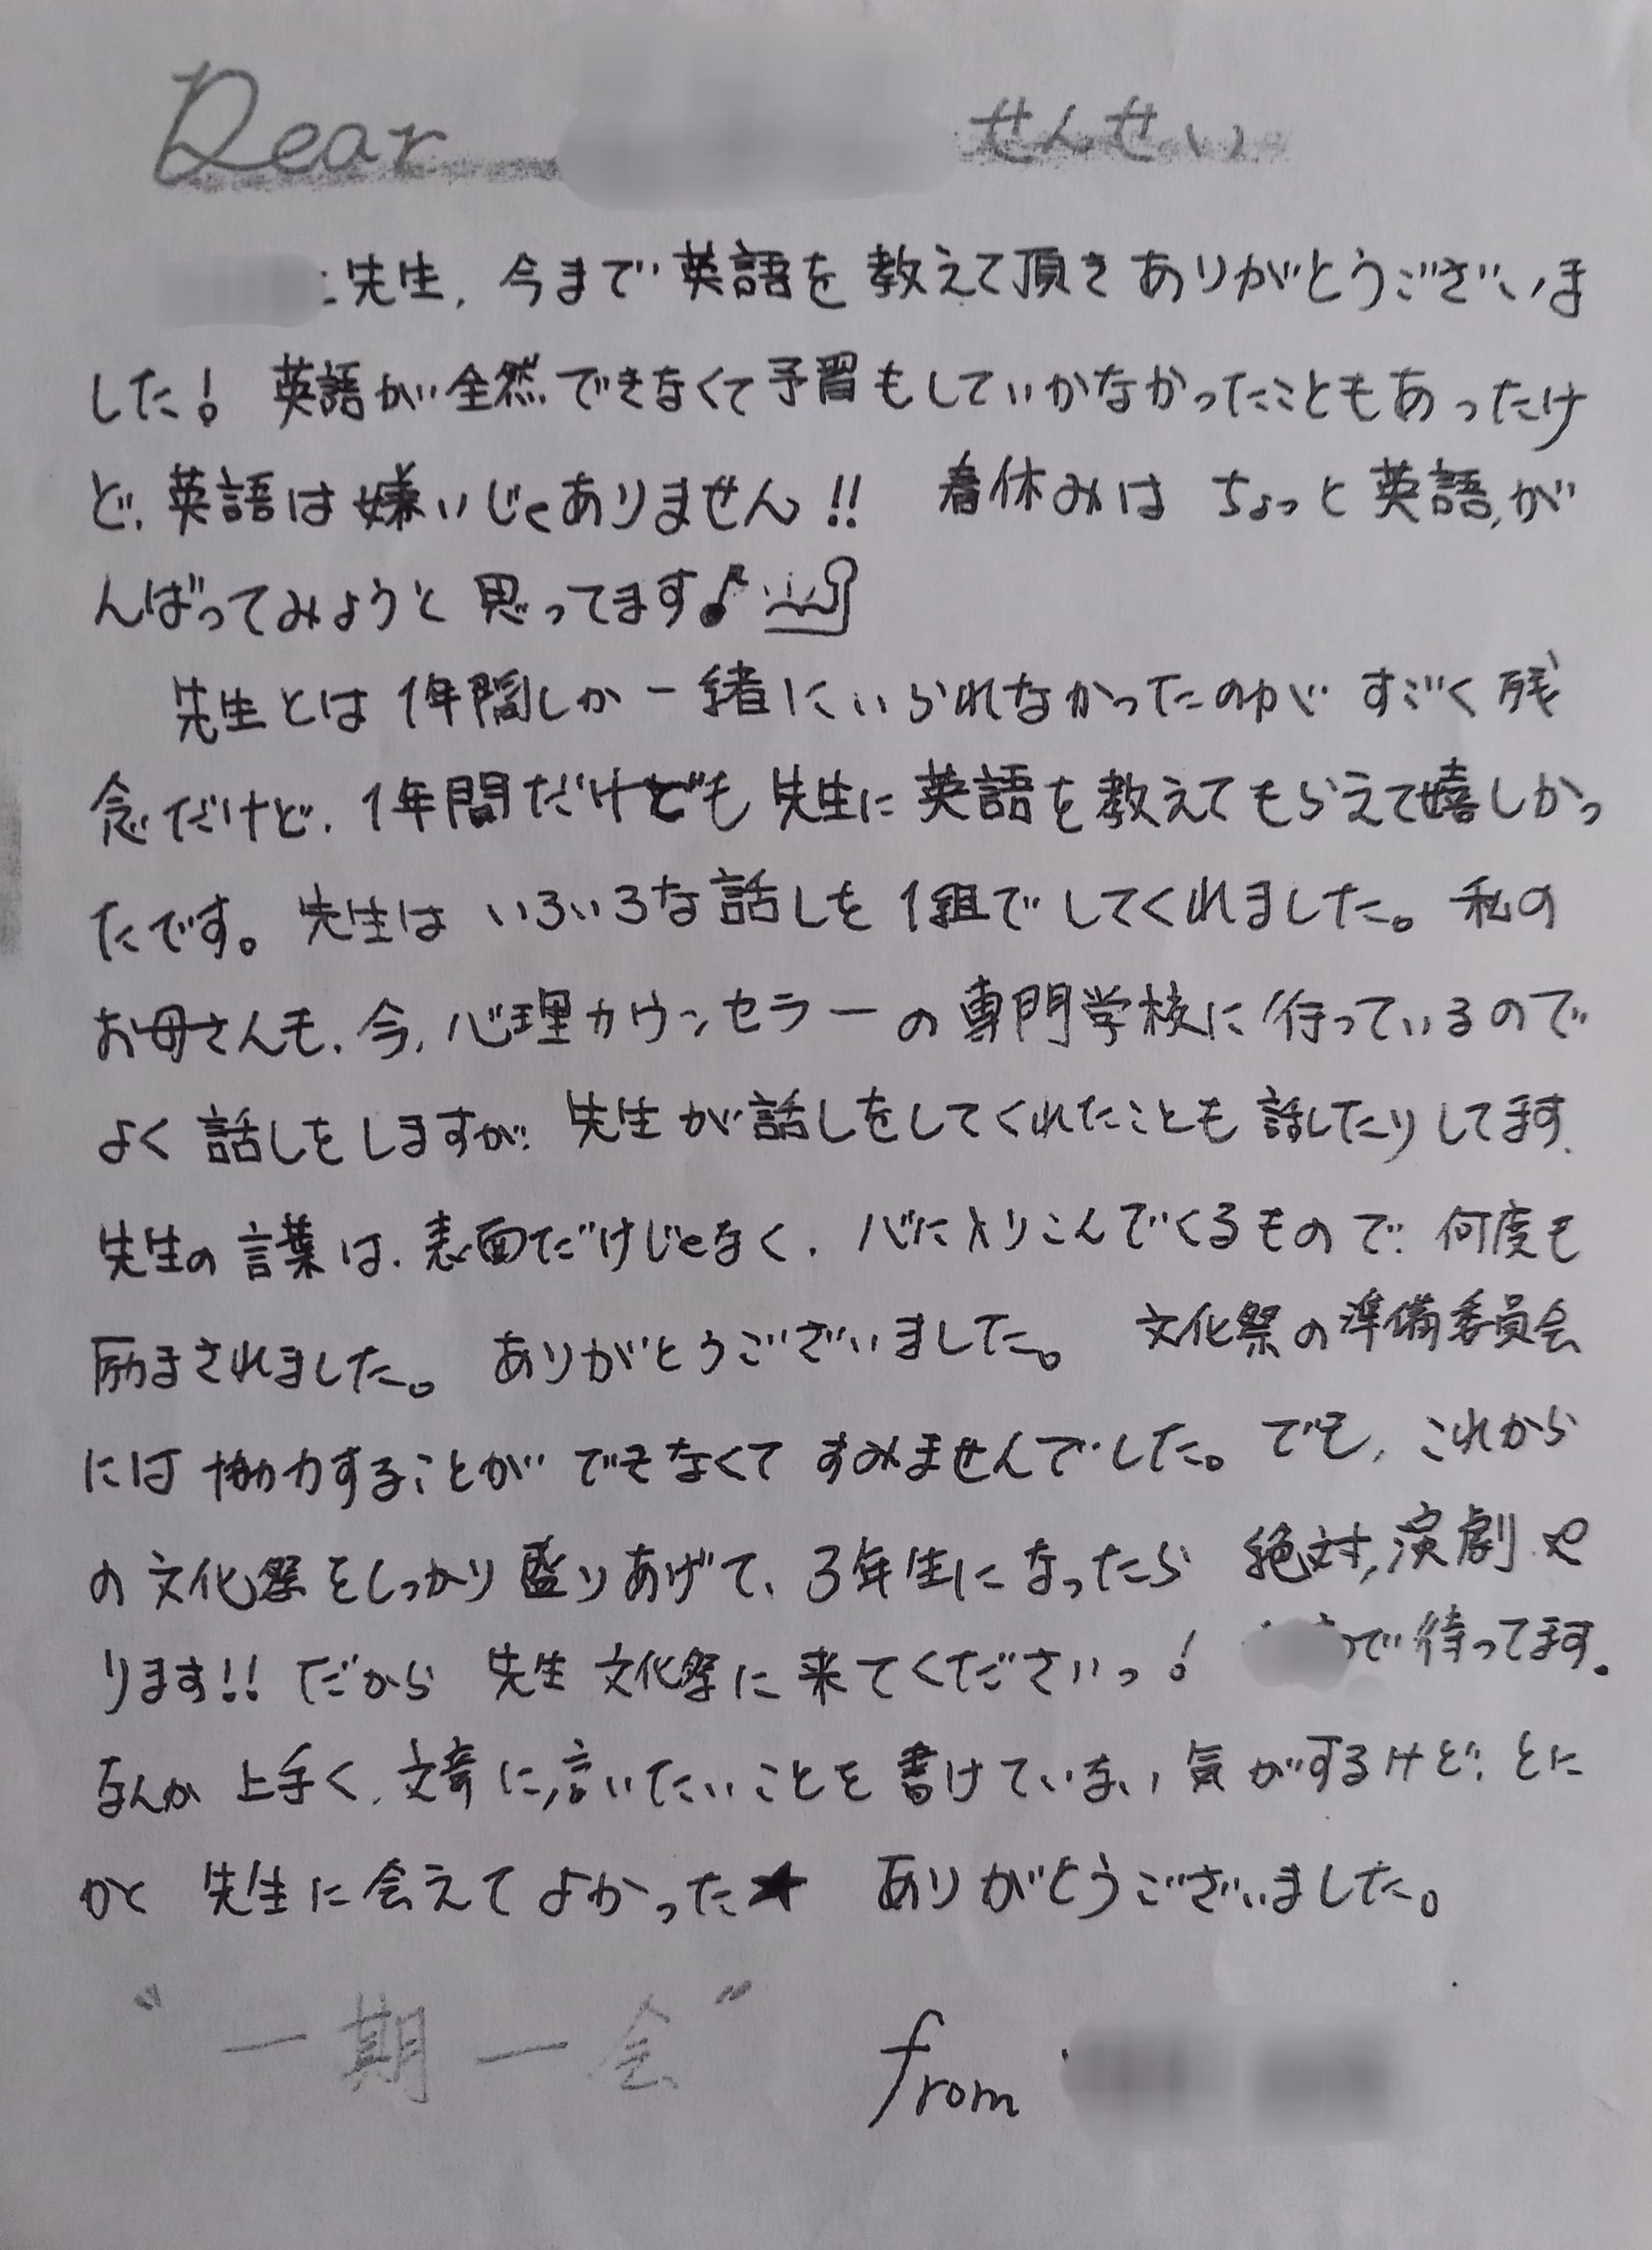 Dear せんせい
先生, 今まで英語を教えて頂きありがとうございま
した! 英語が全然できなくて予習もしていかなかったこともあったけ
ど, 英語は嫌いじゃありません!! 春休みは ちょっと英語,が
んばってみようと思ってます♪
先生とは1年間しか一緒にいられなかったのがすごく残
念だけど, 1年間だけでも先生に英語を教えてもらえて嬉しかっ
たです。先生はいろいろな話しを1組でしてくれました。私の
お母さんも, 今, 心理カウンセラーの専門学校に行っているので
よく話しをしますが, 先生が話しをしてくれたことも話したりしてます.
先生の言葉は, 表面だけじゃなく, 心に入りこんでくるもので, 何度も
励まされました。ありがとうございました。 文化祭の準備委員会
には協力することができなくてすみませんでした。でも, これから
の文化祭をしっかり盛りあげて, 3年生になったら 絶対, 演劇や
ります!! だから 先生 文化祭に来てくださいっ! で待ってます.
なんか上手く, 文章に, 言いたいことを書けていない気がするけど, とに
かく 先生に会えてよかった★ ありがとうございました。
"一期一会" from